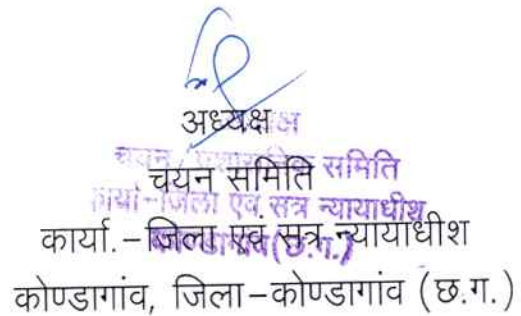 अध्यक्ष
चयन समिति
कार्या.-जिला एवं सत्र न्यायाधीश
कोण्डागांव, जिला-कोण्डागांव (छ.ग.)
समिति
कार्या-जिला एवं सत्र न्यायाधीश
(छ.ग.)